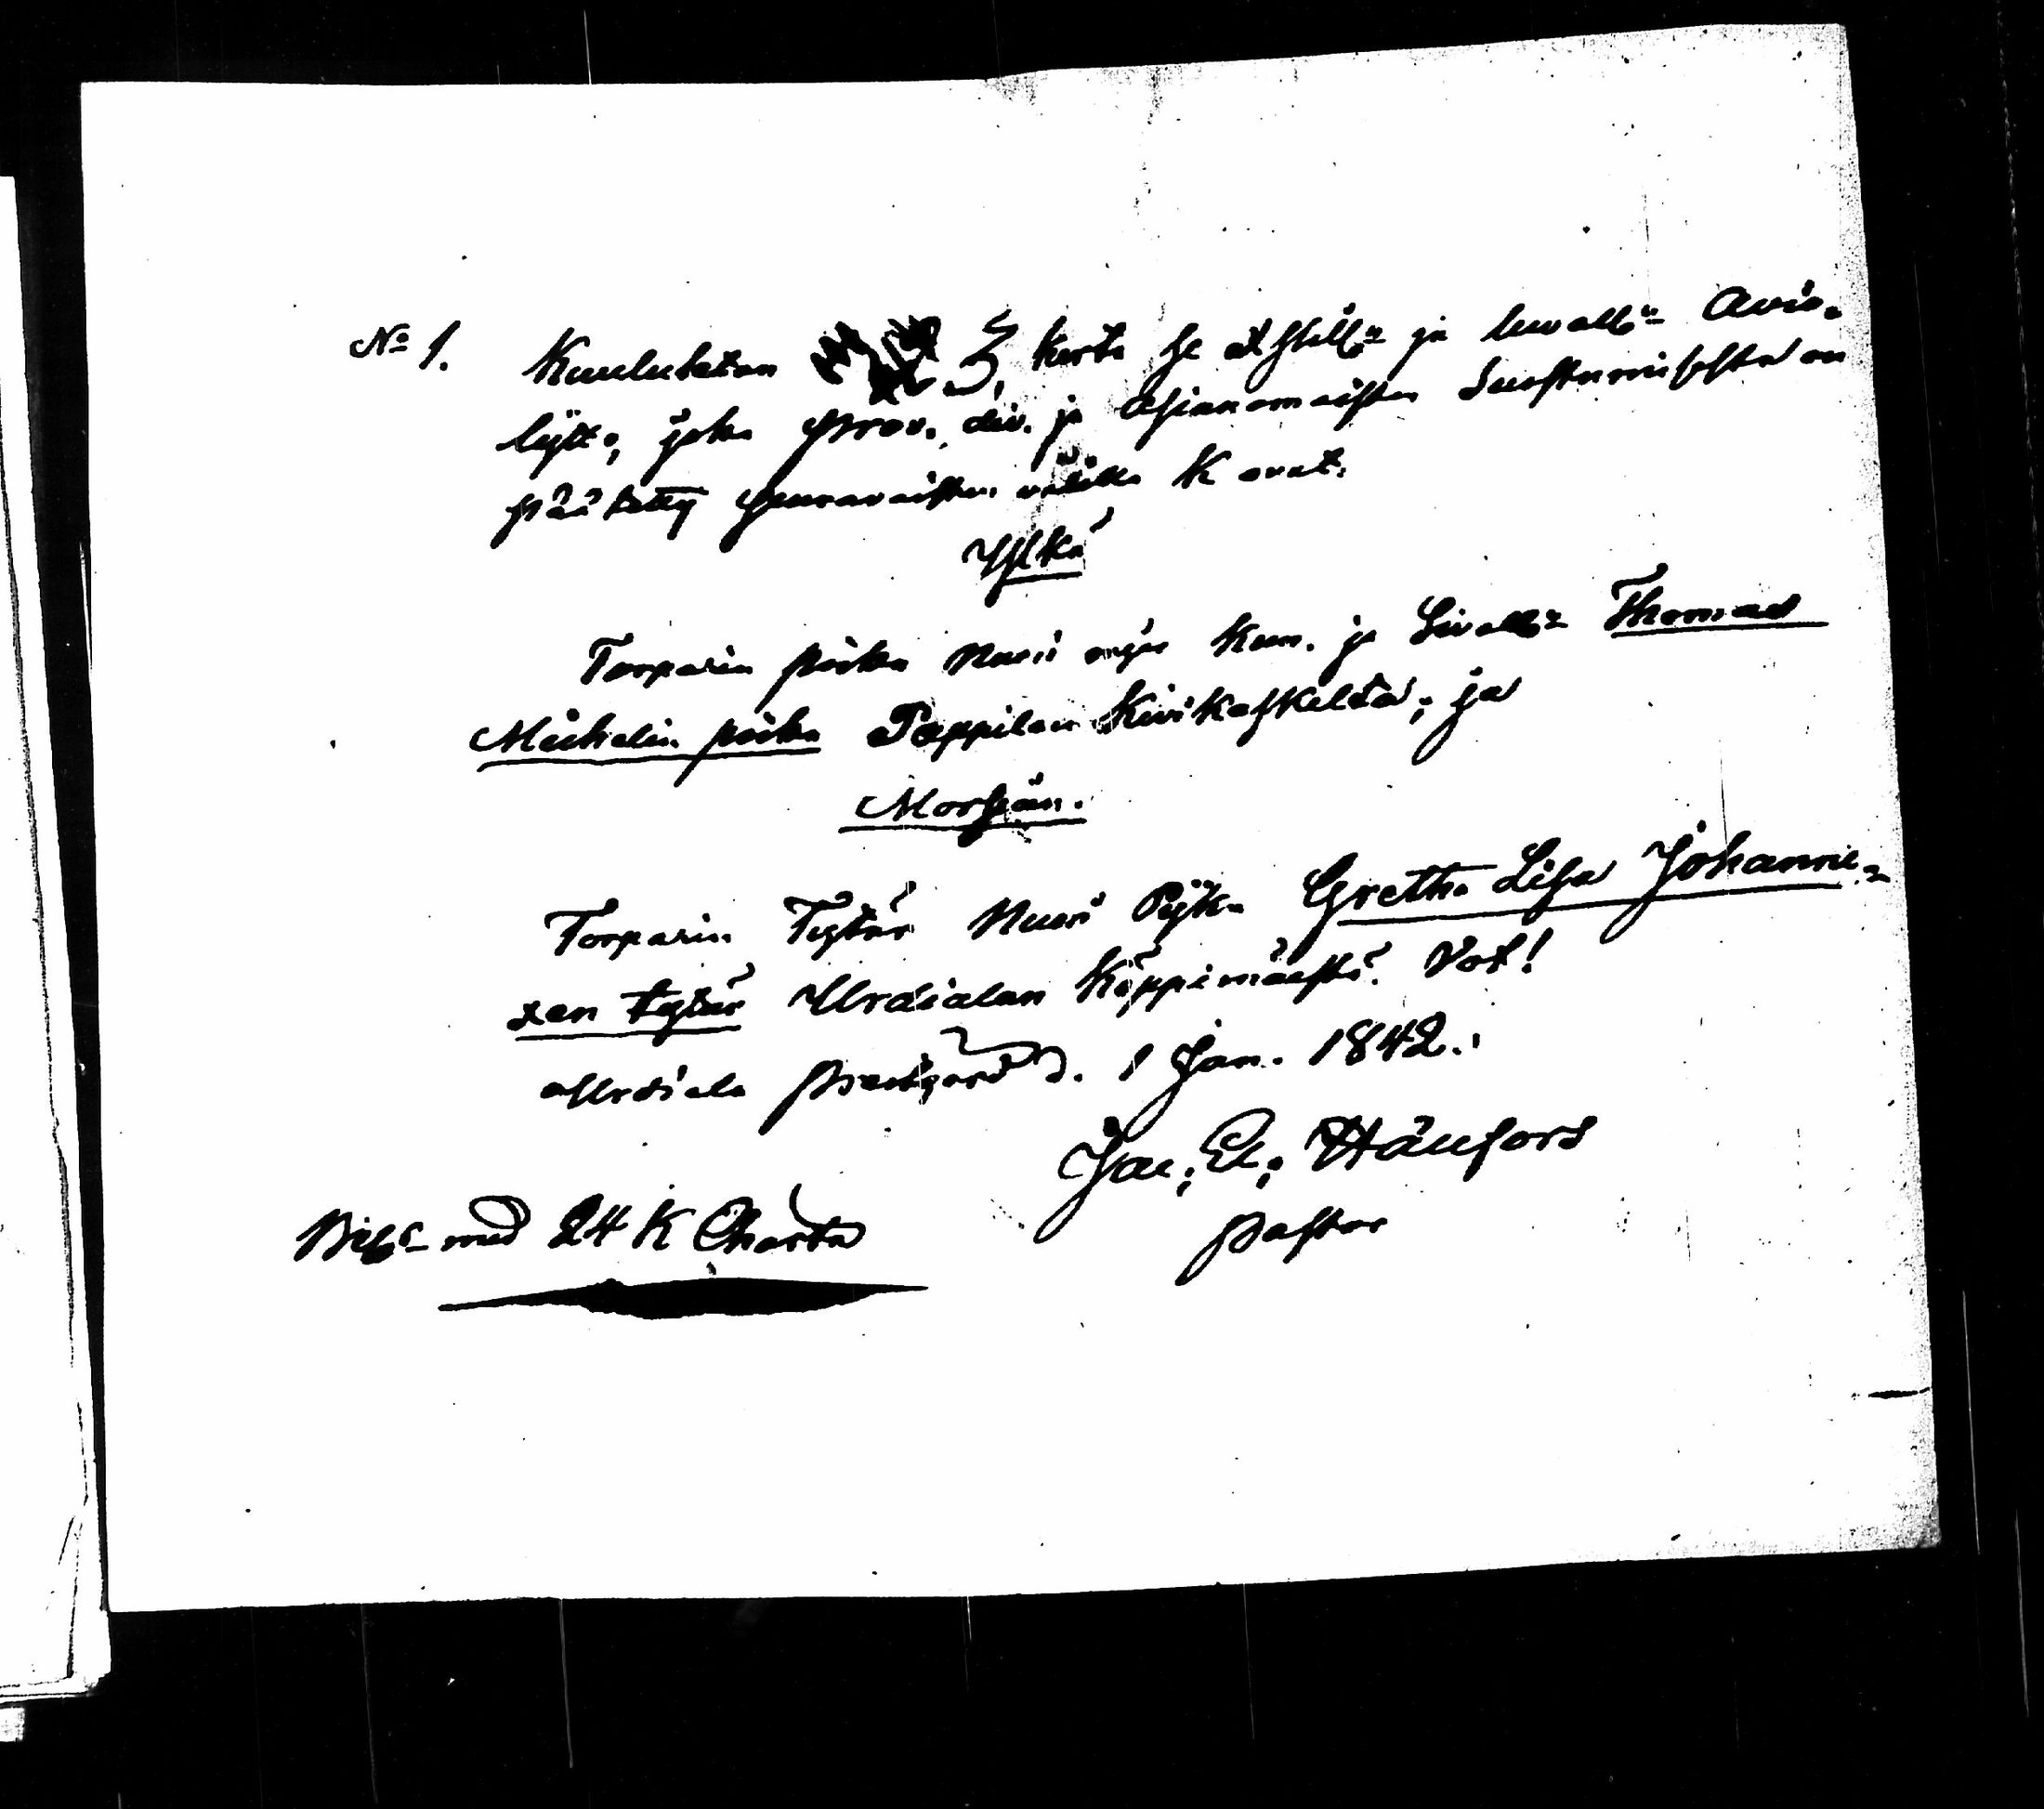 No 1. Kuulutetan 3. kerta se ja luvall:n Avio-
lijtto, joka prov. div. ja Asianomaisten Suostumisesta on
päätetty seuravaisten välillä k ovat.
Ylkä
Torparin poika Nuori mjes Kun. ja Sivall:n Thomas
Michelin poika Pappilan Kivikaskelda, ja
Morsian.
Torparin Tytär Nuori Pijka Gretha Lisa Johannic-
xen tytär Urdialan Köppimäestä. Vot!
Urdiala prestgård d. 1 Jan. 1842.
Jac; Ek; Hällfors
pastor
med 24 K Charta